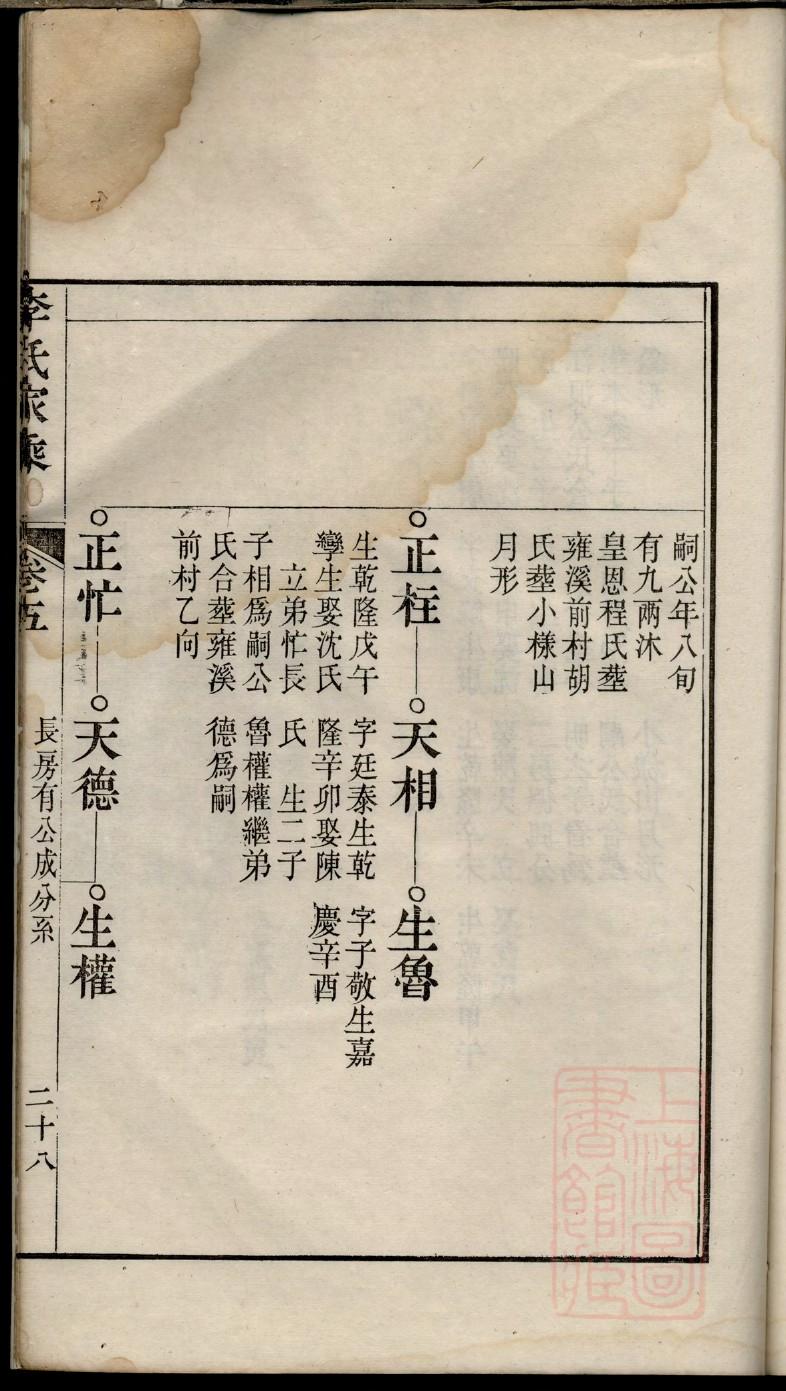 嗣公年八旬
有九兩沐
皇恩程氏塟
雍溪前村胡
氏塟小樣山
月形
正柱
生乾隆戊午
孿生娶沈氏
立弟忙長
子相爲嗣公
氏合塟雍溪
前村乙向
天相
字廷泰生乾
隆辛卯娶陳
氏 生二子
魯權權繼弟
德爲嗣
生魯
字子敬生嘉
慶辛酉
正忙
天德
生權
李氏家乘
卷五
長房有公成分系
二十八
上海圖書館藏